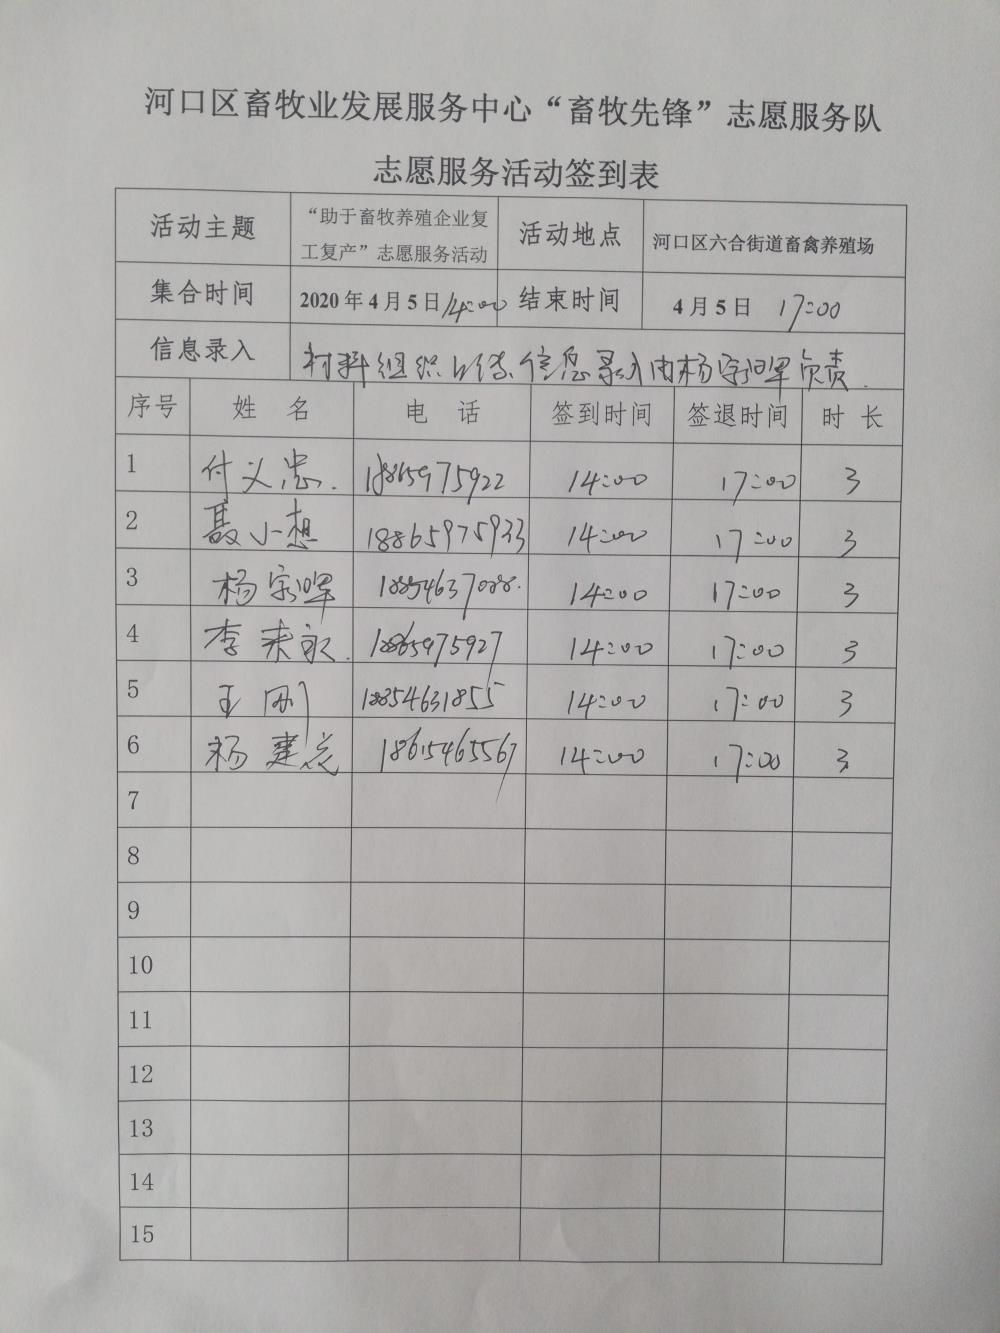 河口区畜牧业发展服务中心“畜牧先锋”志愿服务队
志愿服务活动签到表
活动主题 “助于畜牧养殖企业复工复产”志愿服务活动 活动地点 河口区六合街道畜禽养殖场
集合时间 2020年4月5日14:00 结束时间 4月5日 17:00
信息录入 材料组织上传、信息录入由杨宗晖负责.
序号 姓 名 电 话 签到时间 签退时间 时 长
1 付义忠. 18865975922 14:00 17:00 3
2 聂小想 18865975933 14:00 17:00 3
3 杨宗晖 14:00 17:00 3
4 李来永. 18865975927 14:00 17:00 3
5 王刚 18854631855 14:00 17:00 3
6 杨建 18615465567 14:00 17:00 3
7
8
9
10
11
12
13
14
15